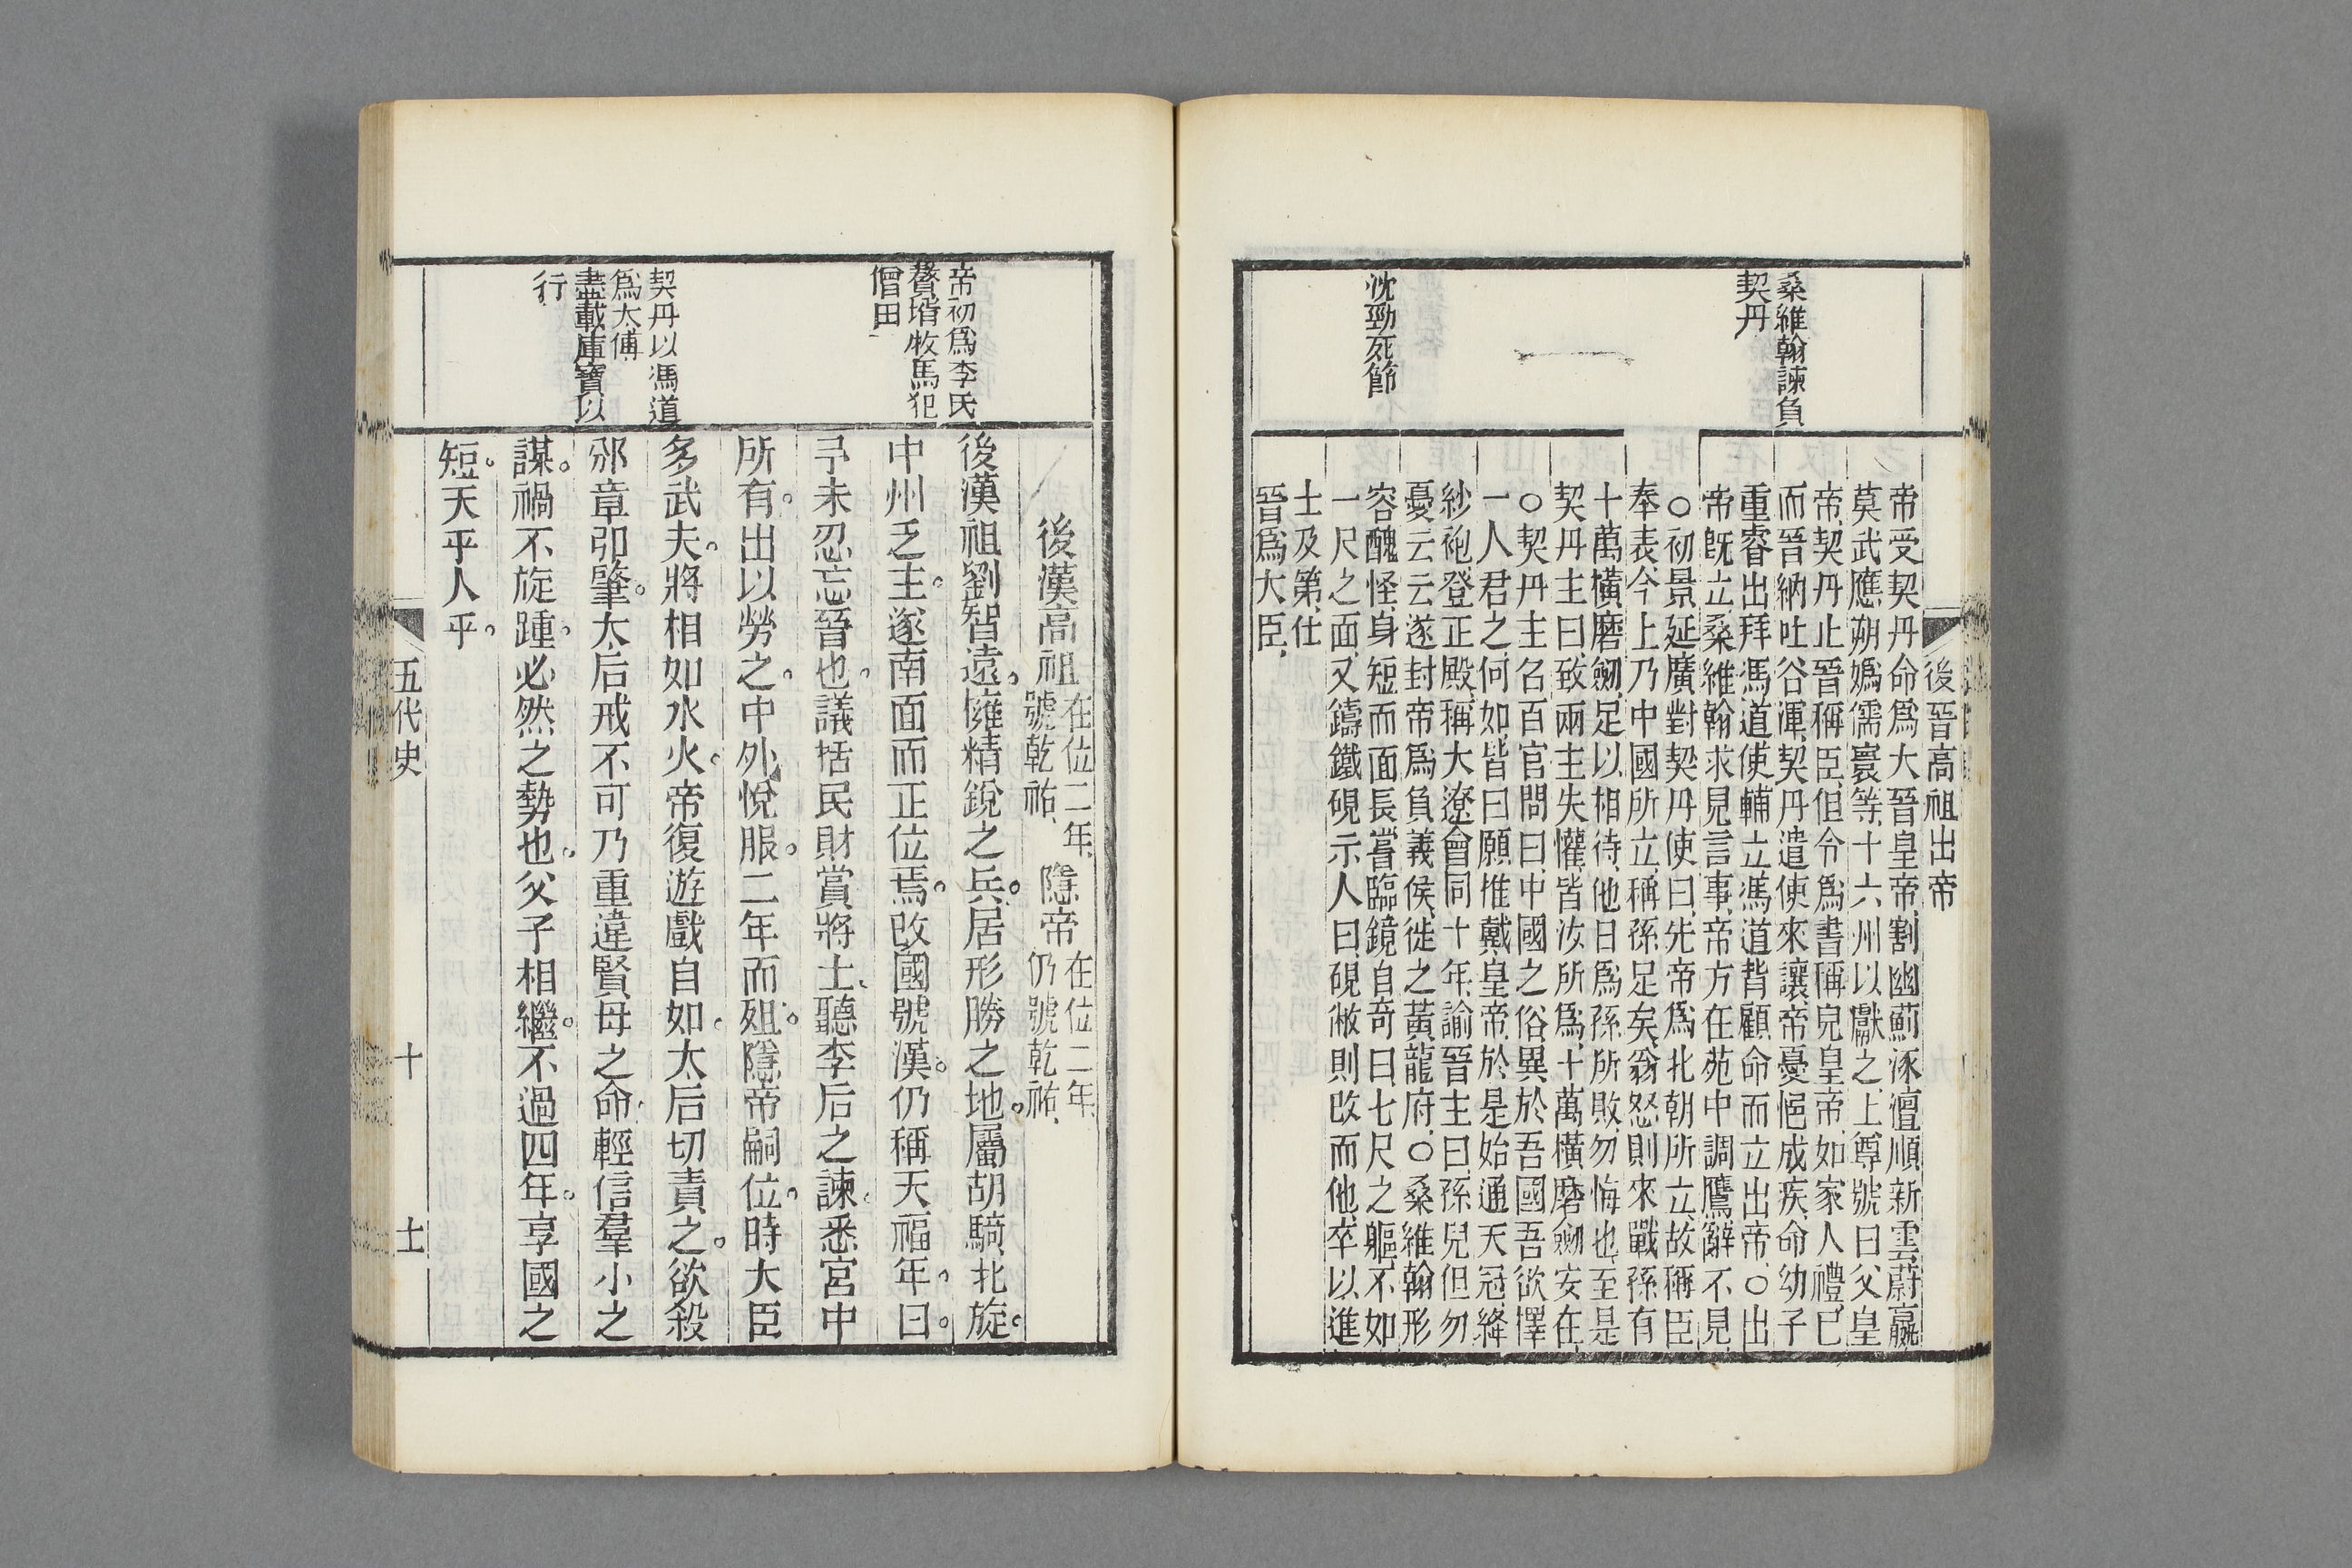 桑維翰諫負
契丹
沈勁死節
後晉高祖出帝
帝受契丹命、爲大晉皇帝、割幽薊涿澶順新雲蔚嬴
莫武應朔嬀儒寰等、十六州以獻之、上尊號曰父皇
帝、契丹止晉稱臣、但令爲書稱兒皇帝、如家人禮、已
而晉納吐谷渾、契丹遣使來讓、帝憂悒成疾、命幼子
重睿出拜馮道、使輔立、馮道背顧命而立出帝、○出
帝既立、桑維翰求見言事、帝方在苑中調鷹、辭不見、
○初景延廣對契丹使曰、先帝爲北朝所立、故稱臣
奉表、今上乃中國所立、稱孫足矣、翁怒則來戰、孫有
十萬橫磨劒、足以相待、他日爲孫所敗、勿悔也、至是
契丹主曰、致兩主失懽、皆汝所爲、十萬橫磨劒安在、
○契丹主召百官問曰、中國之俗、異於吾國、吾欲擇
一人君之、何如、皆曰願推戴皇帝、於是始通天冠、絳
紗袍、登正殿、稱大遼會同十年、諭晉主曰、孫兒但勿
憂云云、遂封帝爲負義侯、徙之黃龍府、○桑維翰形
容醜怪、身短而面長、嘗臨鏡自奇曰、七尺之軀、不如
一尺之面、又鑄鐵硯示人曰、硯敝則改而他、卒以進
士及第、仕
晉爲大臣、
帝初爲李氏
贅壻牧馬犯
僧田
契丹以馮道
爲太傅
盡載庫寶以
行
後漢高祖 在位二年、號乾祐、 隱帝 在位二年、仍號乾祐、
後漢祖劉智遠。擁精銳之兵。居形勝之地。屬胡騎北旋。
中州乏主。遂南面而正位焉。改國號漢。仍稱天福年。曰。
予未忍忘晉也。議括民財賞將士、聽李后之諫。悉宮中
所有。出以勞之。中外悅服。二年而殂。隱帝嗣位。時大臣
多武夫。將相如水火。帝復遊戲自如。太后切責之。欲殺
邠章卲肇。太后戒不可。乃重違賢母之命、輕信羣小之
謀。禍不旋踵。必然之勢也。父子相繼。不過四年。享國之
短。天乎人乎。
五代史
十
士